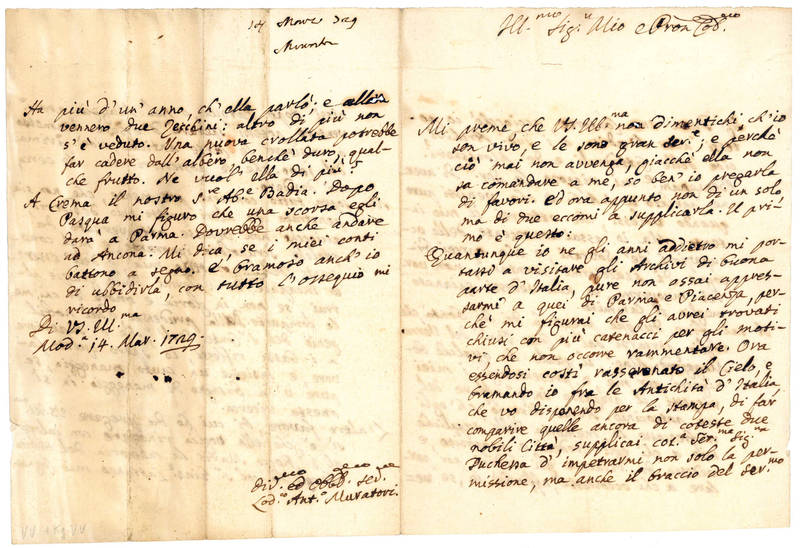 Ill.mo Sig.r Mio e Pron Col.mo
Mi preme che V.S. Ill.ma non dimentichi ch'io
son vivo, e le sono gran Ser.e; e perchè
ciò mai non avvenga, giacchè ella non
sa comandare a me, so ben'io pregarla
di favori. Ed ora appunto non di un solo
ma di due eccomi a supplicarla. Il pri-
mo è questo:
Quantunque io ne gli anni addietro mi por-
tassi a visitare gli Archivi di buona
parte d'Italia, pure non assai appres-
sarmi a quei di Parma e Piacenza, per-
chè mi figurai che gli avrei trovati
chiusi con più catenacci per gli moti-
vi che non occorre rammentare. Ora
essendosi costì rasserenato il Cielo, e
bramando io fra le Antichità d'Italia,
che vo disponendo per la stampa, di far
comparire quelle ancora di coteste due
nobili Città, supplicai cot.a Ser.ma Sig.ra
Duchessa d'impetrarmi non solo la per-
missione, ma anche il braccio del Ser.mo
14 Marzo 729
Ha più d'un'anno, ch'ella parlò; e allora
vennero due Zecchini: altro di più non
s'è veduto. Una nuova crollata potrebbe
far cadere dall'albero benchè duro, qual-
che frutto. Ne vuol'ella di più?
A Crema il nostro S.re Ab.e Badia. Dopo
Pasqua mi figuro che una scorsa egli
darà a Parma. Dovrebbe anche andare
ad Ancona. Mi dica, se i miei conti
battono a segno. E bramoso anch'io
di ubbidirla, con tutto l'ossequio mi
ricordo
Di V.S. Ill.ma
Mod.a 14. Mar. 1729.
div.mo ed obbl.mo ser.re
Lod.o Ant.o Muratori.